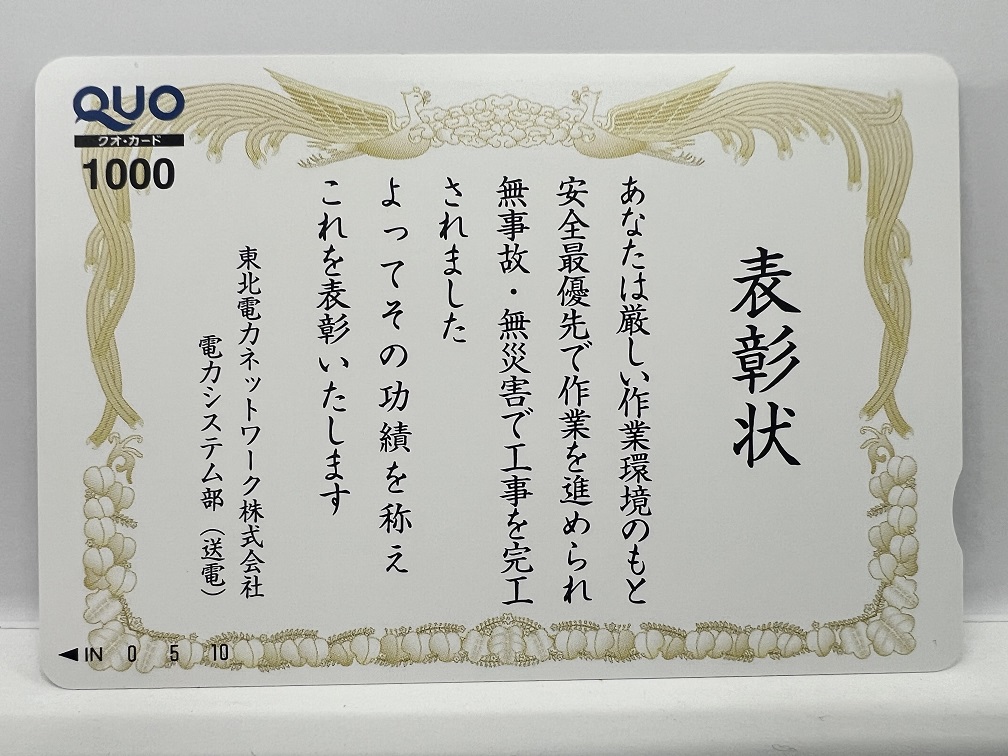 QUO
クオ・カード
1000
表彰状
あなたは厳しい作業環境のもと
安全最優先で作業を進められ
無事故・無災害で工事を完工
されました
よってその功績を称え
これを表彰いたします
東北電力ネットワーク株式会社
電力システム部（送電）
◀IN 0 5 10